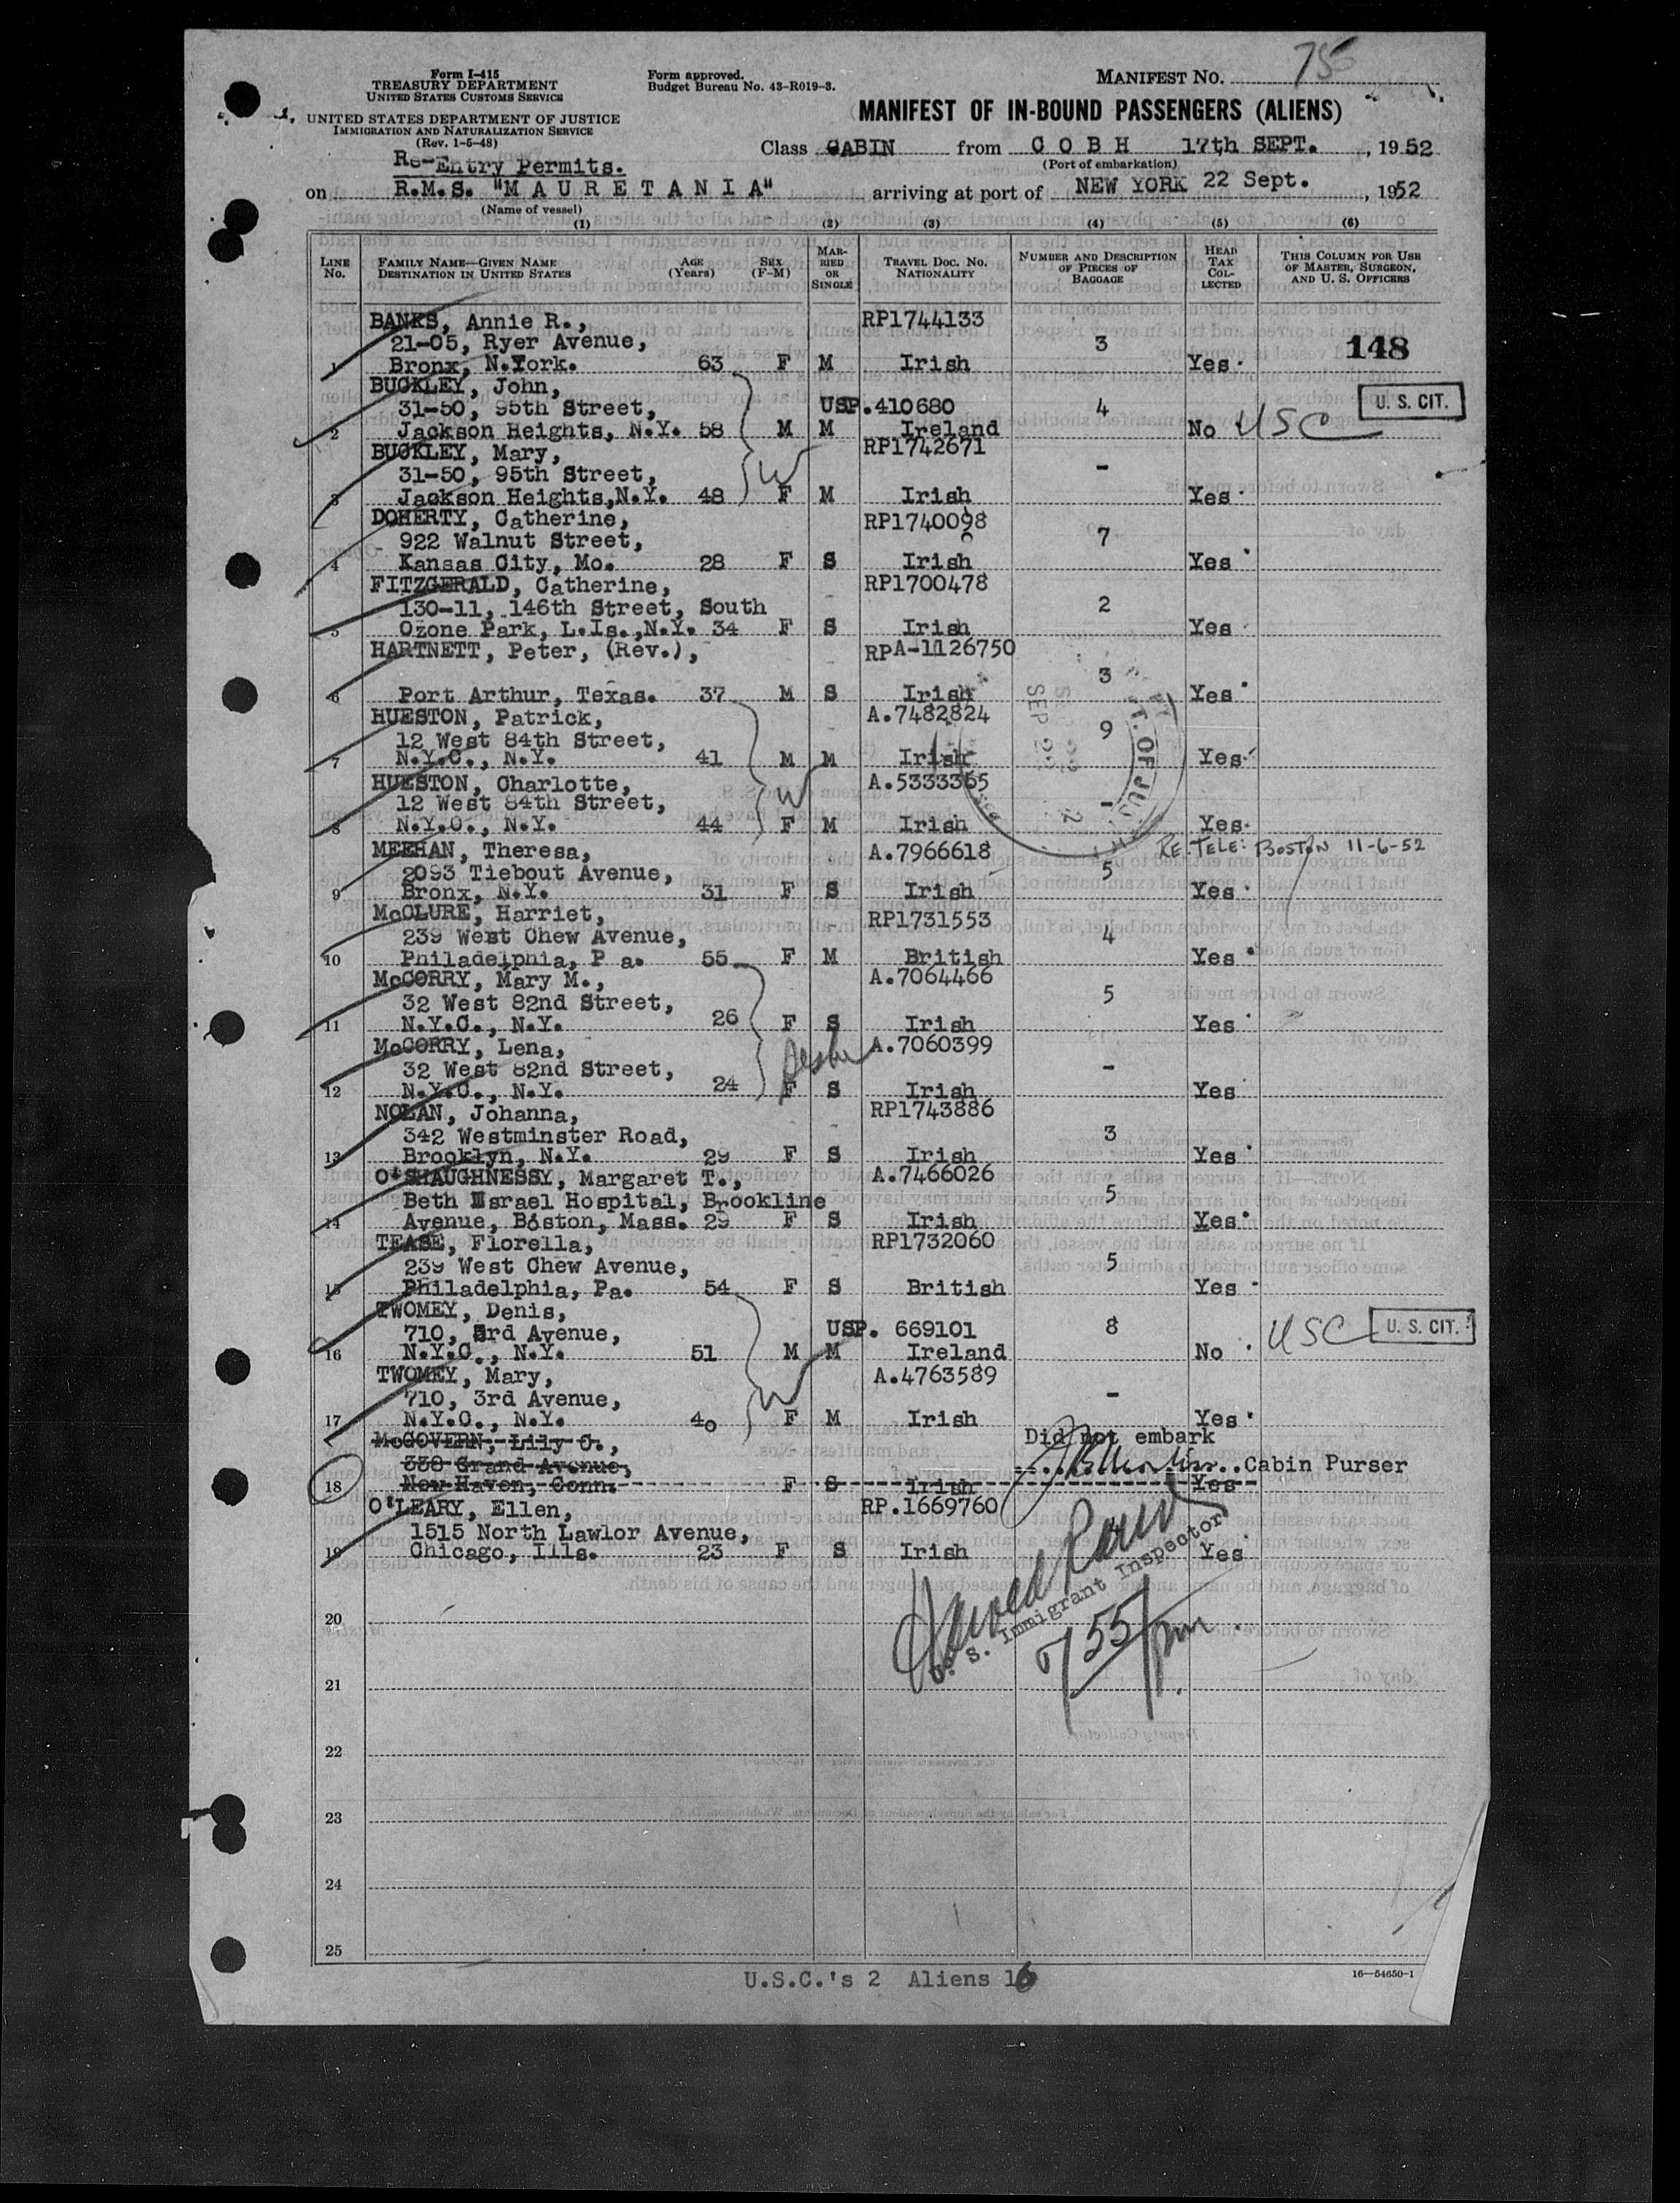 Form I-415
TREASURY DEPARTMENT
UNITED STATES CUSTOMS SERVICE
UNITED STATES DEPARTMENT OF JUSTICE
IMMIGRATION AND NATURALIZATION SERVICE
(Rev. 1-5-48)
Form approved.
Budget Bureau No. 43-R019-3.
MANIFEST NO. 755
MANIFEST OF IN-BOUND PASSENGERS (ALIENS)
Class CABIN from C O B H 17th SEPT., 1952
(Port of embarkation)
Re-Entry Permits.
on R.M.S. "M A U R E T A N I A" arriving at port of NEW YORK 22 Sept., 1952
(Name of vessel)
(1) (2) (3) (4) (5) (6)
LINE NO. FAMILY NAME—GIVEN NAME DESTINATION IN UNITED STATES AGE (Years) SEX (F-M) MARRIED OR SINGLE TRAVEL DOC. NO. NATIONALITY NUMBER AND DESCRIPTION OF PIECES OF BAGGAGE HEAD TAX COLLECTED THIS COLUMN FOR USE OF MASTER, SURGEON, AND U. S. OFFICERS
BANKS, Annie R., RP1744133
21-05, Ryer Avenue, 3 148
1 Bronx, N.York. 63 F M Irish Yes
BUCKLEY, John,
31-50, 95th Street, USP.410680 4 U. S. CIT.
2 Jackson Heights, N.Y. 58 M M Ireland No USC
BUCKLEY, Mary, RP1742671
31-50, 95th Street, W -
3 Jackson Heights,N.Y. 48 F M Irish Yes
DOHERTY, Catherine, RP1740098
922 Walnut Street, 7
4 Kansas City, Mo. 28 F S Irish Yes
FITZGERALD, Catherine, RP1700478
130-11, 146th Street, South 2
5 Ozone Park, L.Is.,N.Y. 34 F S Irish Yes
HARTNETT, Peter, (Rev.), RPA-1126750
3
6 Port Arthur, Texas. 37 M S Irish Yes
HUESTON, Patrick, A.7482824
12 West 84th Street, 9
7 N.Y.C., N.Y. 41 M M Irish Yes
HUESTON, Charlotte, A.5333365
12 West 84th Street, W -
8 N.Y.C., N.Y. 44 F M Irish Yes
MEEHAN, Theresa, A.7966618 RE: TELE: BOSTON 11-6-52
2093 Tiebout Avenue, 5
9 Bronx, N.Y. 31 F S Irish Yes
McCLURE, Harriet, RP1731553
239 West Chew Avenue, 4
10 Philadelphia, P a. 55 F M British Yes
McCORRY, Mary M., A.7064466
32 West 82nd Street, 5
11 N.Y.C., N.Y. 26 F S Irish Yes
McCORRY, Lena, A.7060399
32 West 82nd Street, -
12 N.Y.C., N.Y. 24 F S Irish Yes
NOLAN, Johanna, RP1743886
342 Westminster Road, 3
13 Brooklyn, N.Y. 29 F S Irish Yes
O'SHAUGHNESSY, Margaret T., A.7466026
Beth Israel Hospital, Brookline 5
14 Avenue, Boston, Mass. 29 F S Irish Yes
TEASE, Florella, RP1732060
239 West Chew Avenue, 5
15 Philadelphia, Pa. 54 F S British Yes
TWOMEY, Denis,
710, 3rd Avenue, USP. 669101 8 USC U. S. CIT.
16 N.Y.C., N.Y. 51 M M Ireland No
TWOMEY, Mary, A.4763589
710, 3rd Avenue, W -
17 N.Y.C., N.Y. 40 F M Irish Yes
McGOVERN, Lily C., Did not embark
338 Grand Avenue, Cabin Purser
18 New Haven, Conn. F S Irish Yes
O'LEARY, Ellen, RP.1669760
1515 North Lawlor Avenue,
19 Chicago, Ills. 23 F S Irish Yes
U. S. Immigrant Inspector
20
755/pm
21
22
23
24
25
U.S.C.'s 2 Aliens 16
16—54650-1